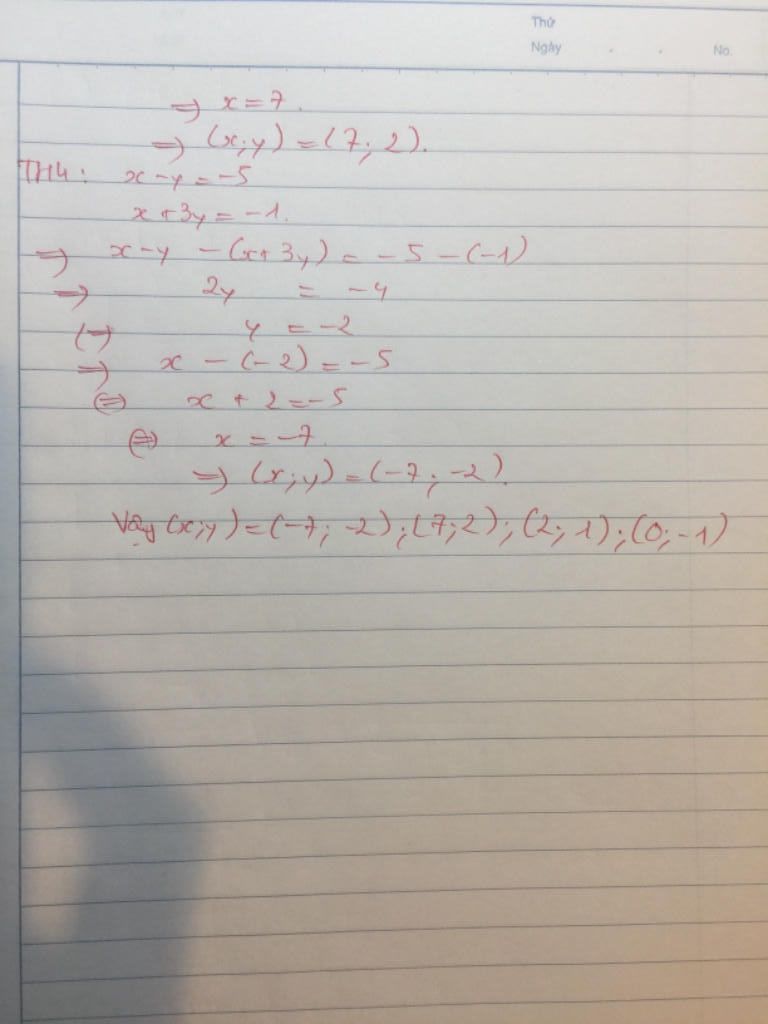 Thứ
Ngày . . No.
=> x = 7.
=> (x;y) = (7; 2).
TH4: x - y = -5
x + 3y = -1.
=> x - y - (x + 3y) = -5 - (-1)
=> 2y = -4
(=> y = -2
=> x - (-2) = -5
<=> x + 2 = -5
<=> x = -7.
=> (x;y) = (-7; -2).
Vậy (x;y) = (-7; -2); (7;2); (2; 1); (0; -1)